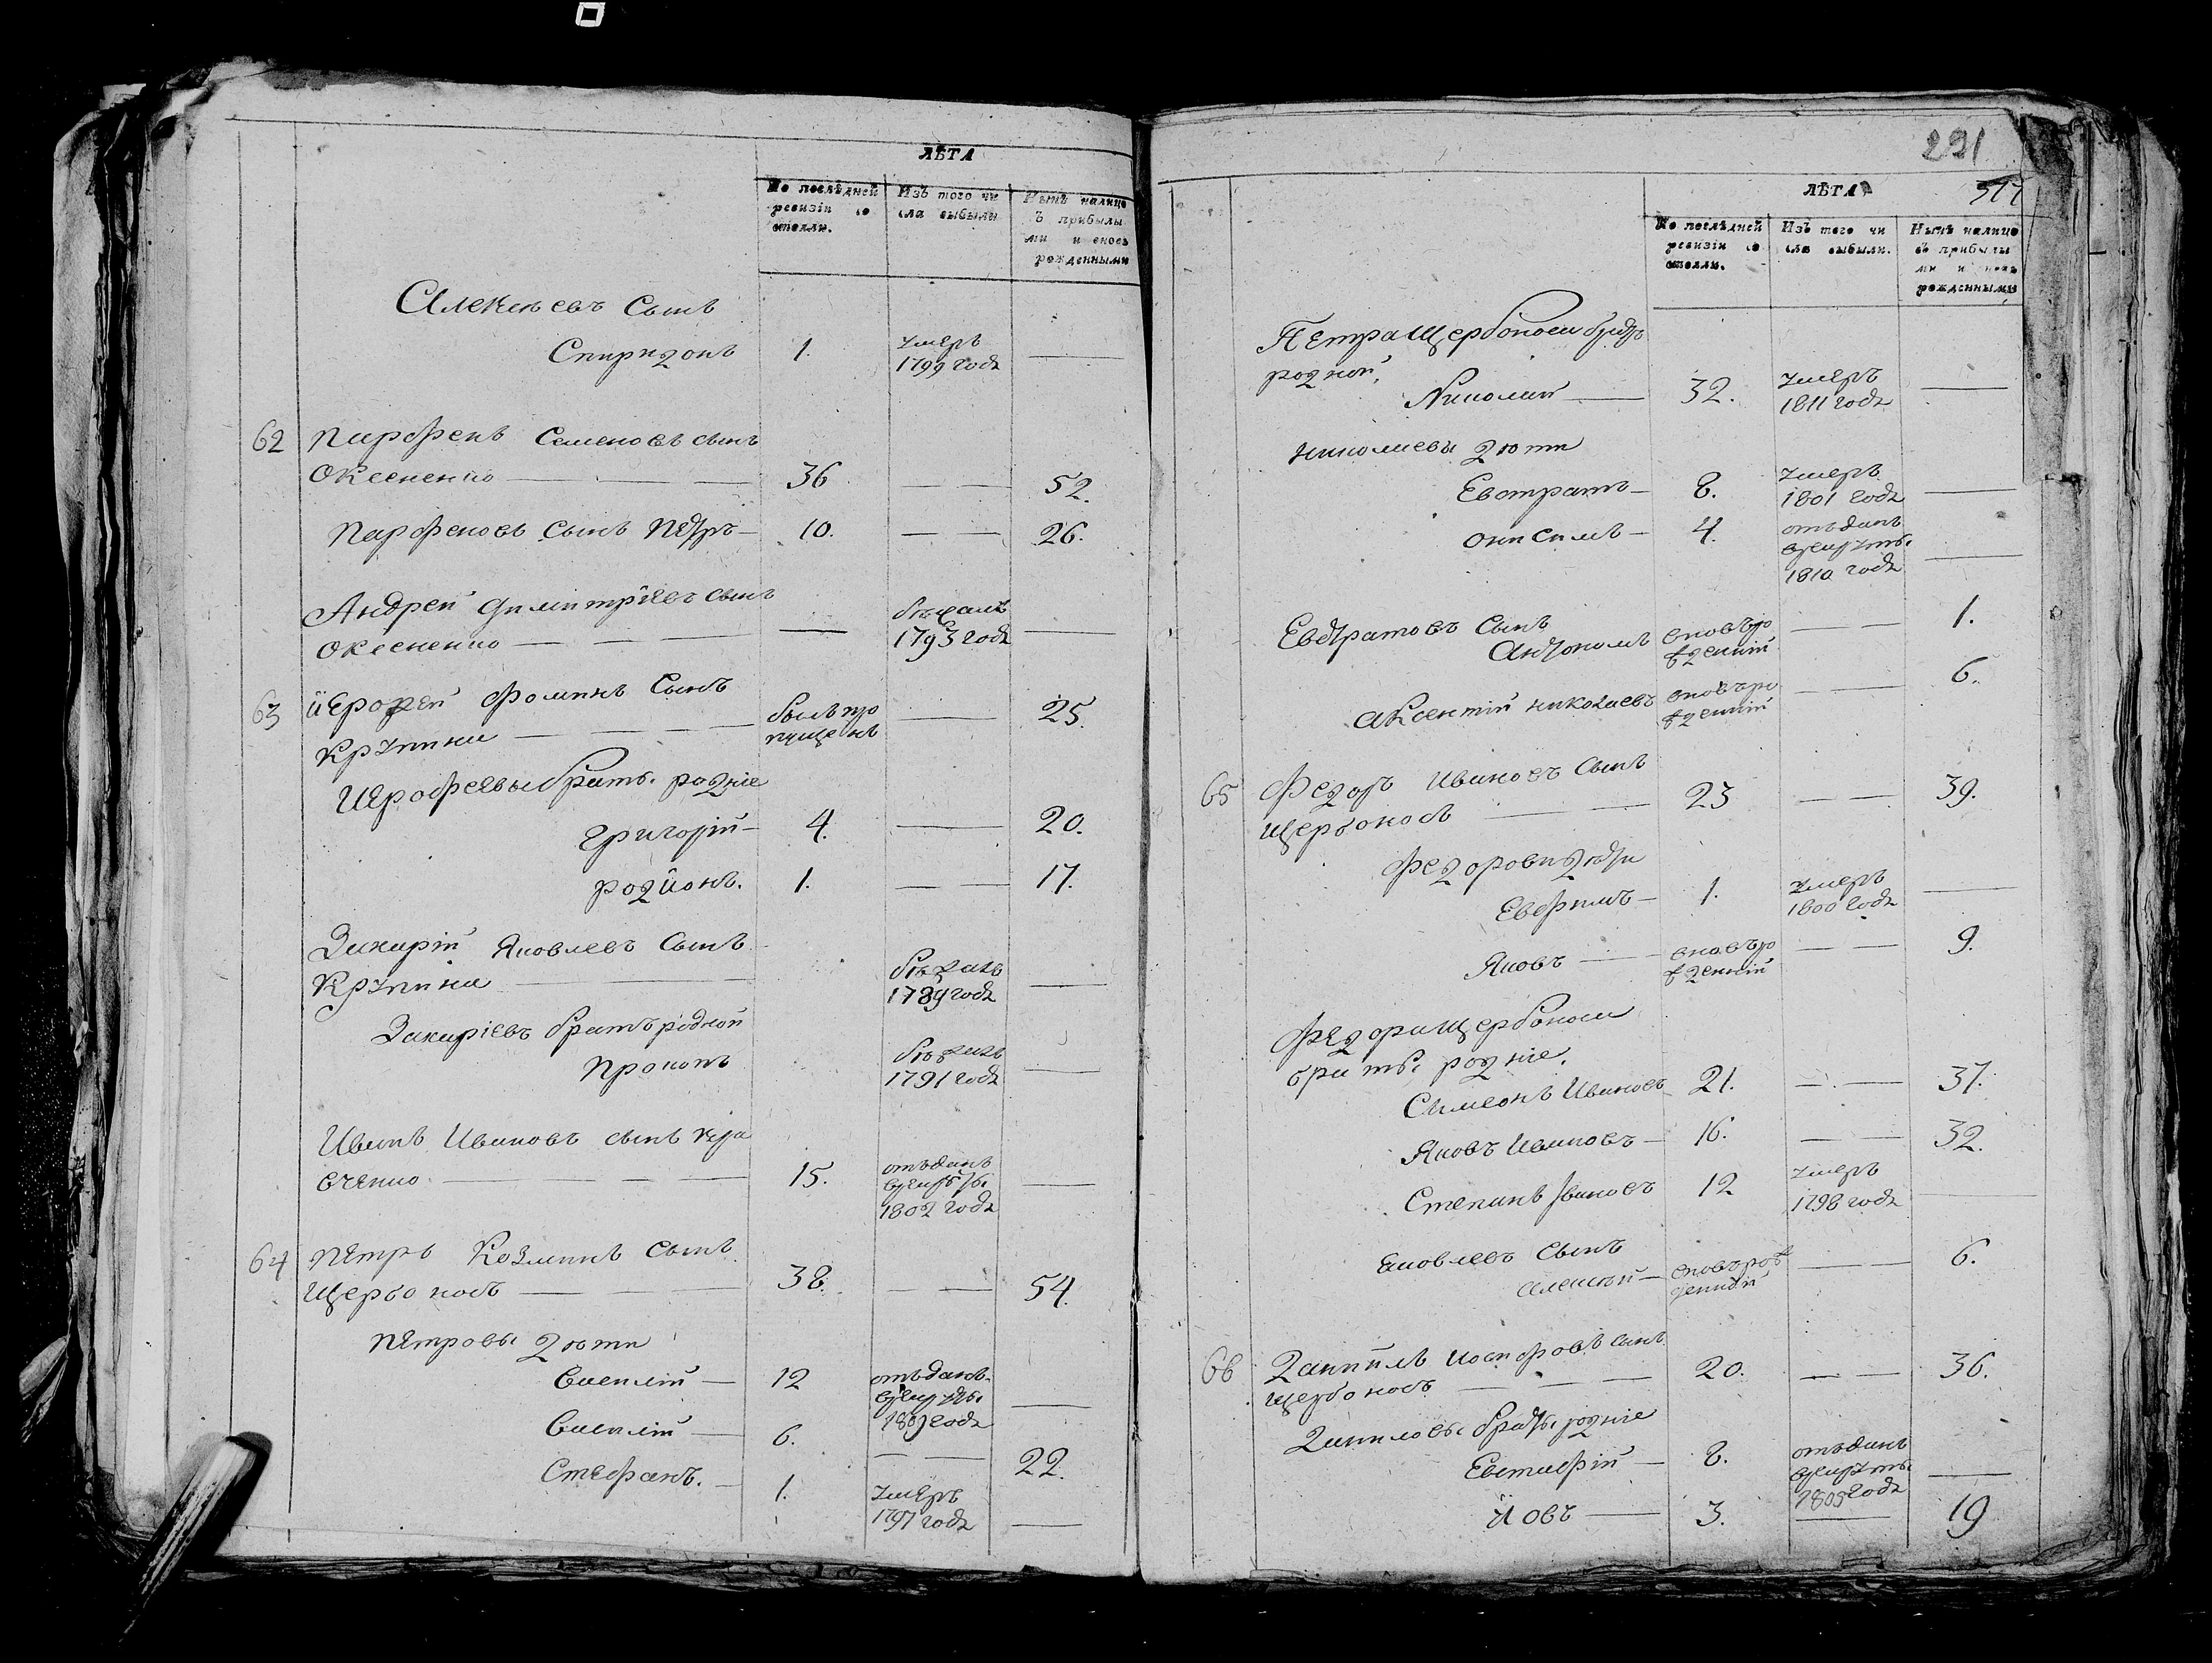 ЛѢТА
По послѣдней Изъ того чи Нынѣ налицо
ревизіи со сла выбыли ъ прибылы
стояли. ми и внов
рожденными
Алексѣевъ сынъ
Спиридонъ 1. умеръ
1799 года —
62 Парфенъ Семеновъ сынъ
Оксененко — 36 — — 52.
Парфеновъ сынъ Петръ — 10. — — 26.
Андрей Димитріевъ сынъ
Оксененко — — — бѣжалъ
1793 года —
63 Иерофей Фоминъ сынъ
Крупина — — — былъ про
пущенъ — 25.
Иерофѣевы братья роднie
Григорій — 4. — 20.
Родионъ. 1. — — 17.
Захарій Яковлевъ сынъ
Крупина — бѣжалъ
1789 года —
Захаріевъ братъ родной
Прокопъ бѣжалъ
1791 года —
Иванъ Ивановъ сынъ Кра
вченко — — — 15. отъданъ
в рекруты
1802 года —
64 Петръ Козминъ сынъ
Щербоносъ — — 38. — — 54.
Петровы дѣти
Василій — 12 отъданъ
в рекруты
1809 года —
Василій — 6. — — 22.
Стефанъ. — 1. умеръ
1797 года —
291
ЛѢТА 377
По послѣдней Изъ того чи Нынѣ налицо
ревизіи со сла выбыли. съ прибылы
стояли. ми и новъ
рожденными
Петра Щербоноса братъ
родной,
Николай — 32. умеръ
1811 года —
Николаевы дѣти
Евстратъ — 8. умеръ
1801 года —
Онисимъ — 4. отъданъ
в рекруты
1810 года —
Евстратовъ сынъ
Антономъ вновъро
жденній — — 1.
Аксентій Николаевъ вновъро
жденній — — 6.
65 Федоръ Ивановъ сынъ
Щербоносъ — — 23 — — 39.
Федорови дѣти
Евфимъ — 1. умеръ
1800 года —
Яковъ — вновъро
жденній — — 9.
Федора Щербоноса
братьї родніе.
Симеонъ Ивановъ 21. — — 37.
Яковъ Ивановъ — 16. — — 32.
Степанъ Ивановъ 12 умеръ
1798 года —
Яковлевъ сынъ
Алексѣй — вновърож
денній — — 6.
66 Даниилъ Иосифовъ сынъ
Щербоносъ — — — 20. — — 36.
Даниловы братьї родніе
Евстафій — 8. отъданъ
в рекруты
1805 года —
Иовъ — 3. — 19